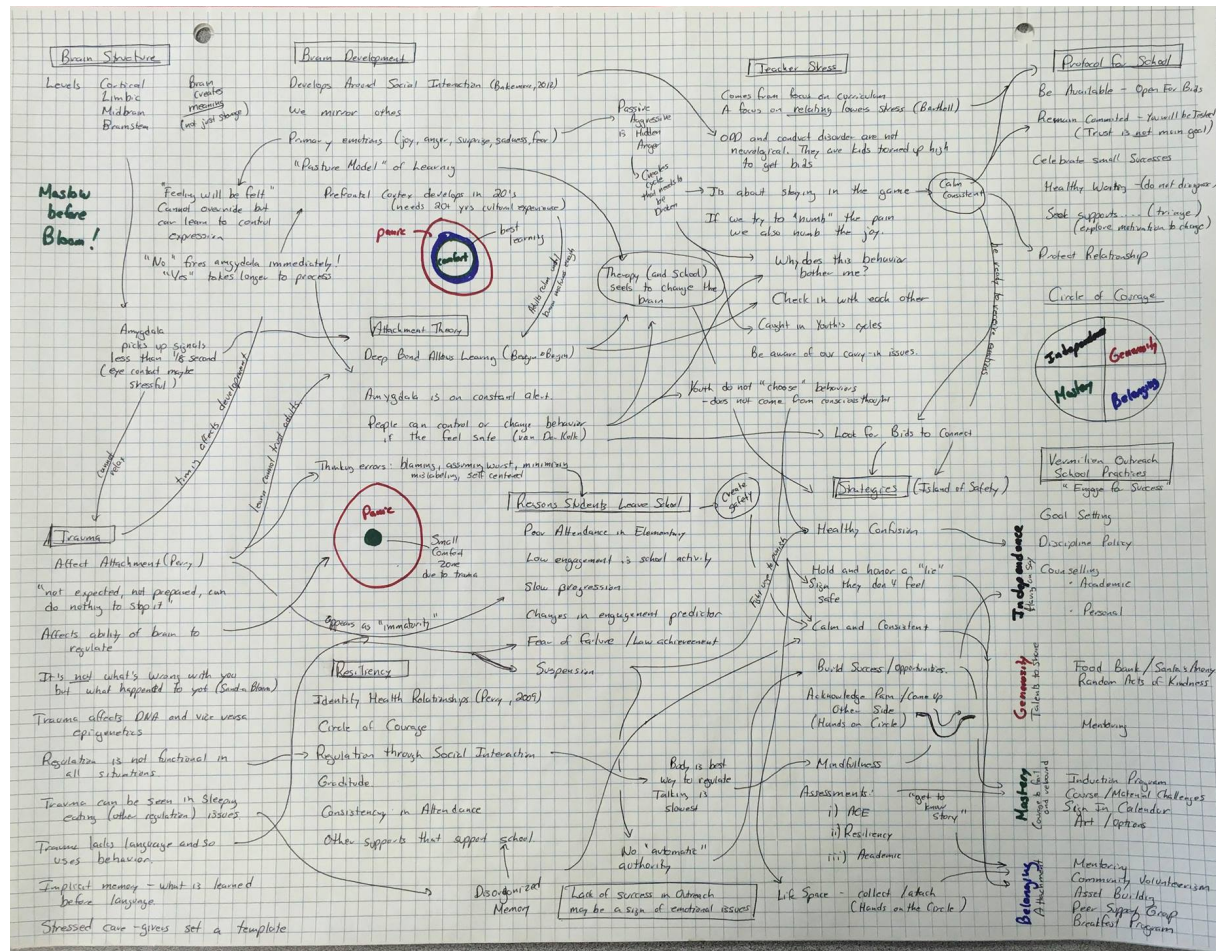 Brain Structure
Levels Cortical
Limbic
Midbrain
Brainstem
Brain
creates
meaning
(not just storage)
Maslow
before
Bloom!
"Feeling will be felt"
Cannot override but
can learn to control
expression
"No" fires amygdala immediately!
"Yes" takes longer to process
Amygdala
picks up signals
less than 1/8 second
(eye contact maybe
stressful)
cannot
relax
timing affects development
learn cannot trust adults
Trauma
Affect Attachment (Perry)
"not expected, not prepared, can
do nothing to stop it"
Affects ability of brain to
regulate
It's not what's wrong with you
but what happened to yo (Sandra Bloom)
Trauma affects DNA and vice versa
epigenetics
Regulation is not functional in
all situations
Trauma can be seen in Sleeping
eating (other regulation) issues
Trauma lacks language and so
uses behavior.
Implicit memory - what is learned
before language
Stressed care-givers set a template
Brain Development
Develops Around Social Interaction
We mirror othes
Primary emotions (joy, anger, surprise, sadness, fear)
"Pasture Model" of Learning
Prefrontal Cortex develops in 20's
(needs 20+ yrs cultural experience)
panic
comfort
best
learning
Passive
Aggressive
is Hidden
Anger
Creates
cycle
that needs to
be
Broken
Therapy (and School)
seeks to change the
brain
Attachment Theory
Deep Bond Allows Learning
Amygdala is on constant alert.
People can control or change behavior
if the feel safe (Van Der Kolk)
Thinking errors: blaming, assuming worst, minimizing
mislabeling, self centered
Panic
Small
Comfort
zone
due to trama
appears as "immaturity"
Reasons Students Leave School
Poor Attendance in Elementary
Low engagement is school activity
Slow progression
Changes in engagement predictor
Fear of Failure / Low achievement
Suspension
Create
Safety
Resiliency
Identify Health Relationships (Perry, 2009)
Circle of Courage
Regulation through Social Interaction
Gratitude
Consistency in Attendance
Other supports that support school
Disorganized
Memory
Body is best
way to regulate
Talking is
slowest
No "automatic"
authority
Lack of success in Outreach
may be a sign of emotional issues
Teacher Stress
Comes from focus on curriculum
A focus on relating lowers stress
ODD and conduct disorder are not
neurological. They are kids turned up high
to get bids
Its about staying in the game
If we try to "numb" the pain
we also numb the joy.
Why does this behavior
bother me?
Check in with each other
Caught in Youth's cycles
Be aware of our carry-in issues.
Youth do not "choose" behaviors
- does not come from conscious thought
Look for Bids to Connect
Calm
Consistent
be ready to receive
Strategies (Island of Safety)
Healthy Confusion
Hold and honor a "lie"
Sign they don't feel
safe
Calm and Consistent
Build Success / Opportunities.
Acknowledge Pain / Come up
Other Side
(Hands on Circle)
Mindfullness
Assessments:
i) ACE
ii) Resiliency
iii) Academic
"get to
know
story"
Life Space - collect / attach
(Hands on the Circle)
Protocol for School
Be Available - Open For Bids
Remain Commited - You will be Tested
(Trust is not main goal)
Celebrate small Successes
Healthy Waiting - (do not disappear)
Seek supports.... (triage)
(explore motivation to change)
Protect Relationship
Circle of Courage
Independence
Generosity
Mastery
Belonging
Vermilion Outreach
School Practices
"Engage for Success"
Independence
Goal Setting
Discipline Policy
Counselling
• Academic
• Personal
Generosity
Talents to Share
Food Bank / Santa's Anony
Random Acts of Kindness
Mentoring
Mastery
Courage to fail
and rebound
Induction Program
Course / Material Challenges
Sign In Calendar
Art / Options
Belonging
Attachment
Mentoring
Community Volunteerism
Asset Building
Peer Support Group
Breakfast Program